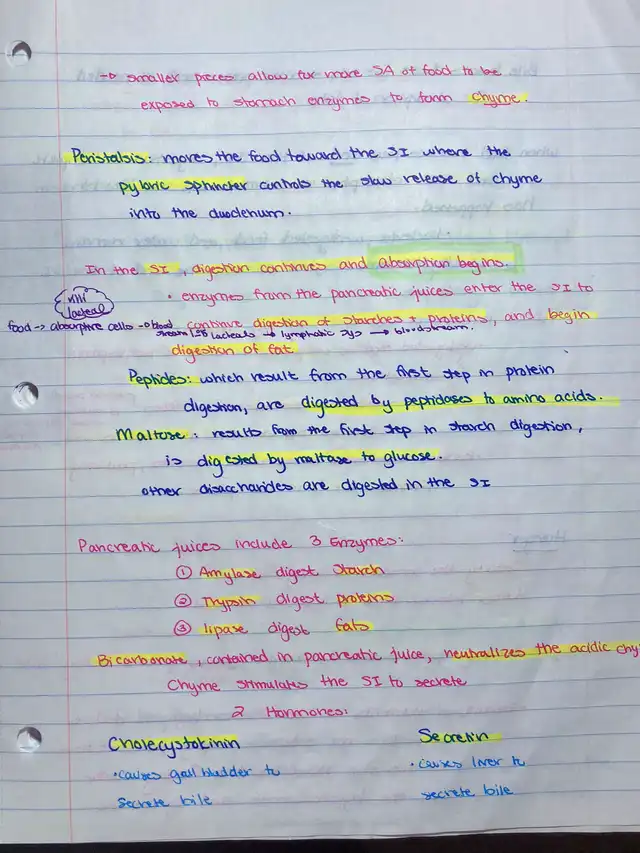 → smaller pieces allow for more SA of food to be
exposed to stomach enzymes to form chyme.
Peristalsis: moves the food toward the SI where the
pyloric sphincter controls the slow release of chyme
into the duodenum.
In the SI, digestion continues and absorption begins.
• enzymes from the pancreatic juices enter the SI to
lacteal
food → absorptive cells → blood continue digestion of starches + proteins, and begin
lacteals → lymphatic sys → bloodstream.
digestion of fat
Peptides: which result from the first step in protein
digestion, are digested by peptidases to amino acids.
Maltose: results from the first step in starch digestion,
is digested by maltase to glucose.
other disaccharides are digested in the SI
Pancreatic juices include 3 Enzymes:
① Amylase digest starch
② Trypsin digest proteins
③ lipase digest fats
Bicarbonate, contained in pancreatic juice, neutralizes the acidic chy
Chyme stimulates the SI to secrete
2 Hormones:
Cholecystokinin Secretin
• causes gall bladder to • causes liver to
secrete bile secrete bile